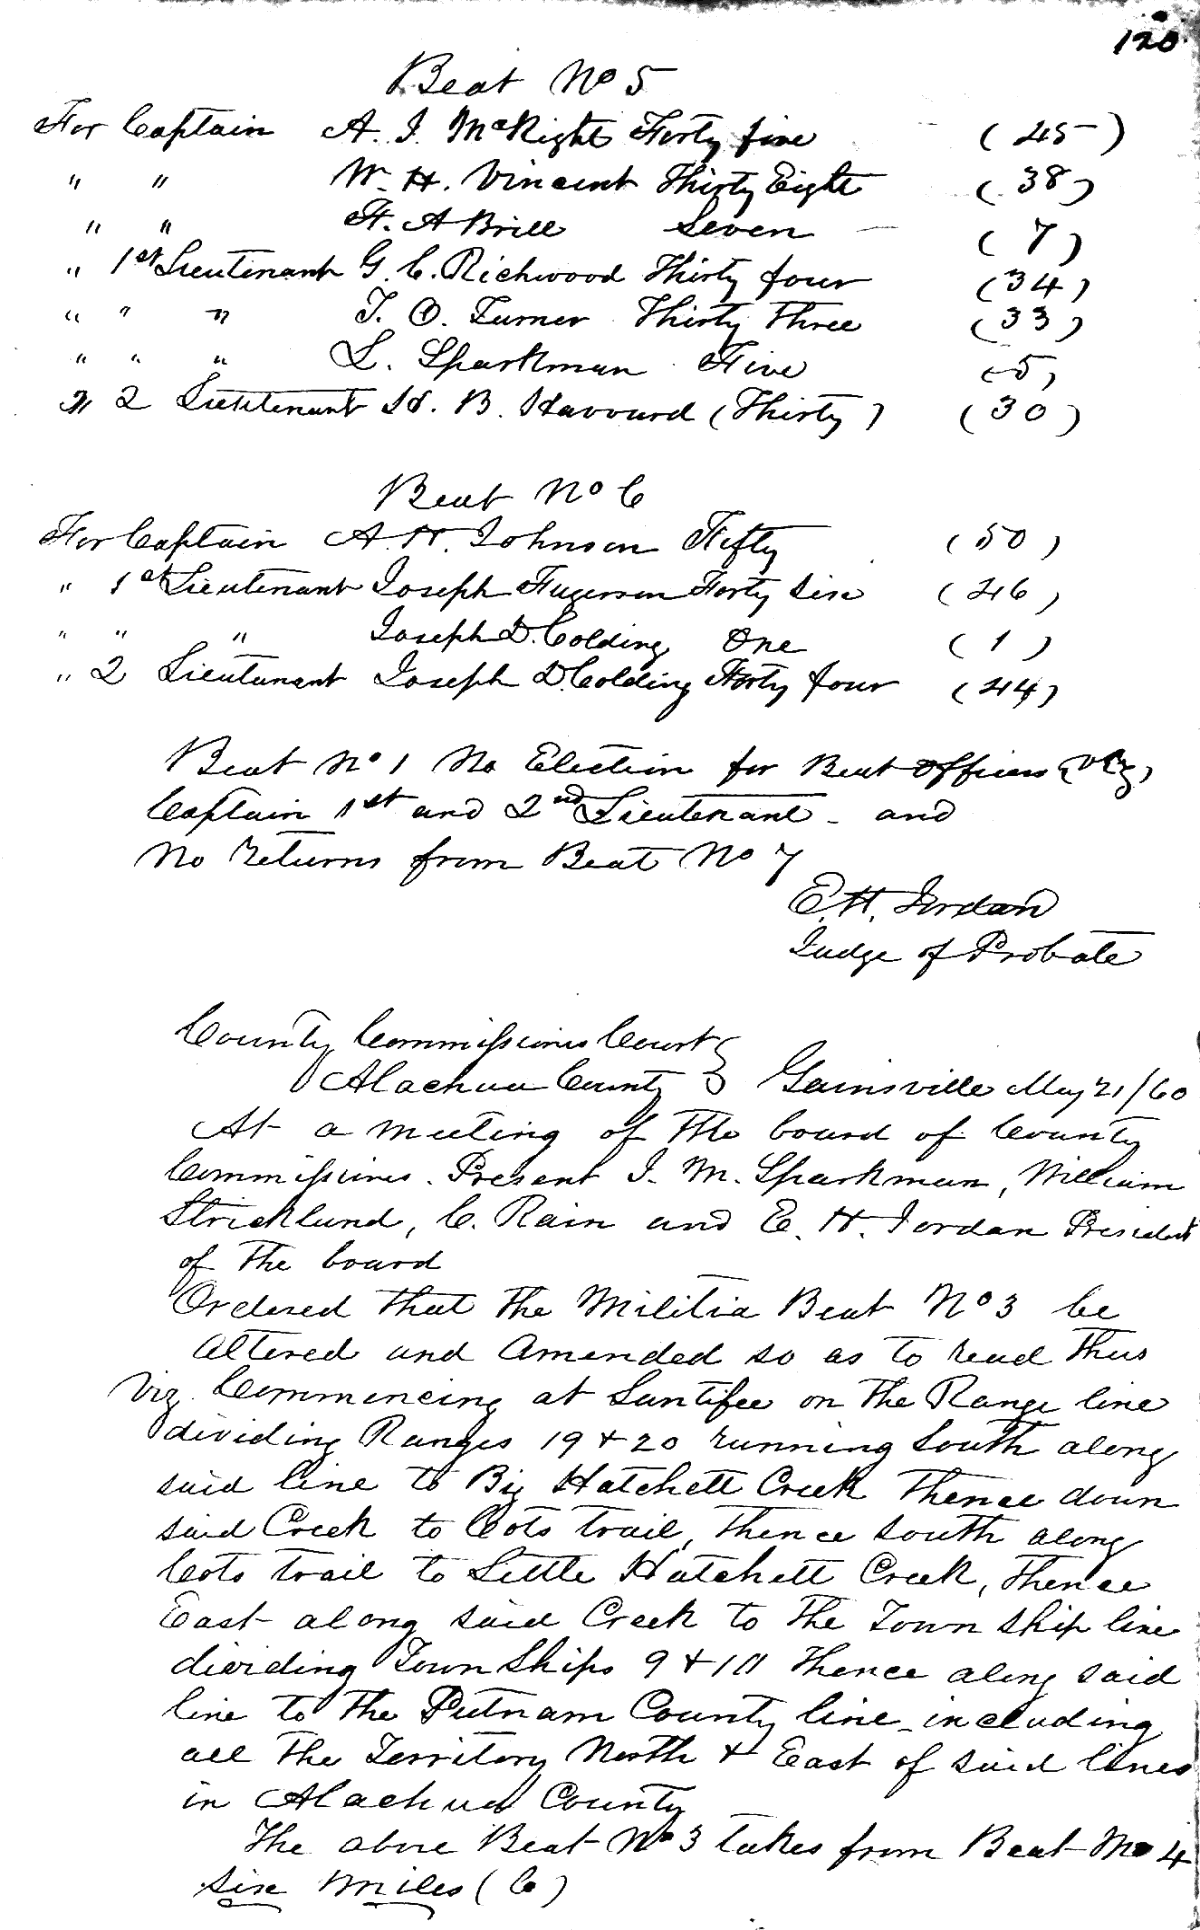 120
Beat No 5
For Captain A. J. McRight Forty five (45)
" " W. H. Vincent Thirty Eight (38)
" " F. A Brill Seven (7)
" 1st Lieutenant G. C. Richwood Thirty four (34)
" " " J. O. Turner Thirty Three (33)
" " " L. Sparkman Five (5)
" 2 Lieutenant H. B. Havvard (Thirty) (30)
Beat No 6
For Captain A. H. Johnson Fifty (50)
" 1st Lieutenant Joseph Fugerson Forty six (46)
" " " Joseph D. Colding One (1)
" 2 Lieutenant Joseph D. Colding Forty four (44)
Beat No 1 No Election for Beat Officers (Viz)
Captain 1st and 2nd Lieutenant - and
No returns from Beat No 7
E. H. Jordan
Judge of Probate
County Commissiones Court }
Alachua County } Gainsville May 21/60
At a meeting of the board of County
Commissiones. Present J. M. Sparkman, William
Strickland, C. Rain and E. H. Jordan President
of the board
Ordered that the Militia Beat No 3 be
altered and amended so as to read thus
Viz. Commencing at Santifee on the Range line
dividing Ranges 19 & 20 running South along
said line to Big Hatchett Creek Thence down
said Creek to Cots trail, thence south along
Cots trail to Little Hatchett Creek, thence
East along said Creek to the Town ship line
dividing Town Ships 9 & 10 thence along said
line to the Putnam County line - including
all the Territory North & East of said lines
in Alachua County
The above Beat No 3 takes from Beat No 4
six miles (6)